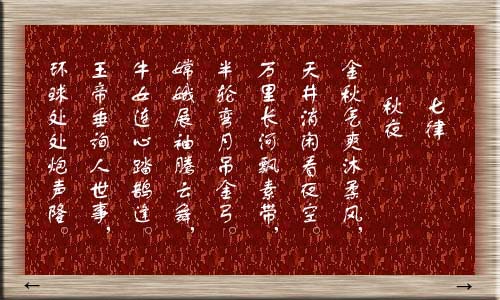 七律
秋夜
金秋气爽沐柔风,
天井消闲看夜空。
万里长河飘素带,
半轮弯月吊金弓。
嫦娥展袖腾云舞,
牛女连心踏鹊逢。
玉帝垂询人世事,
环球处处炮声隆。
← →